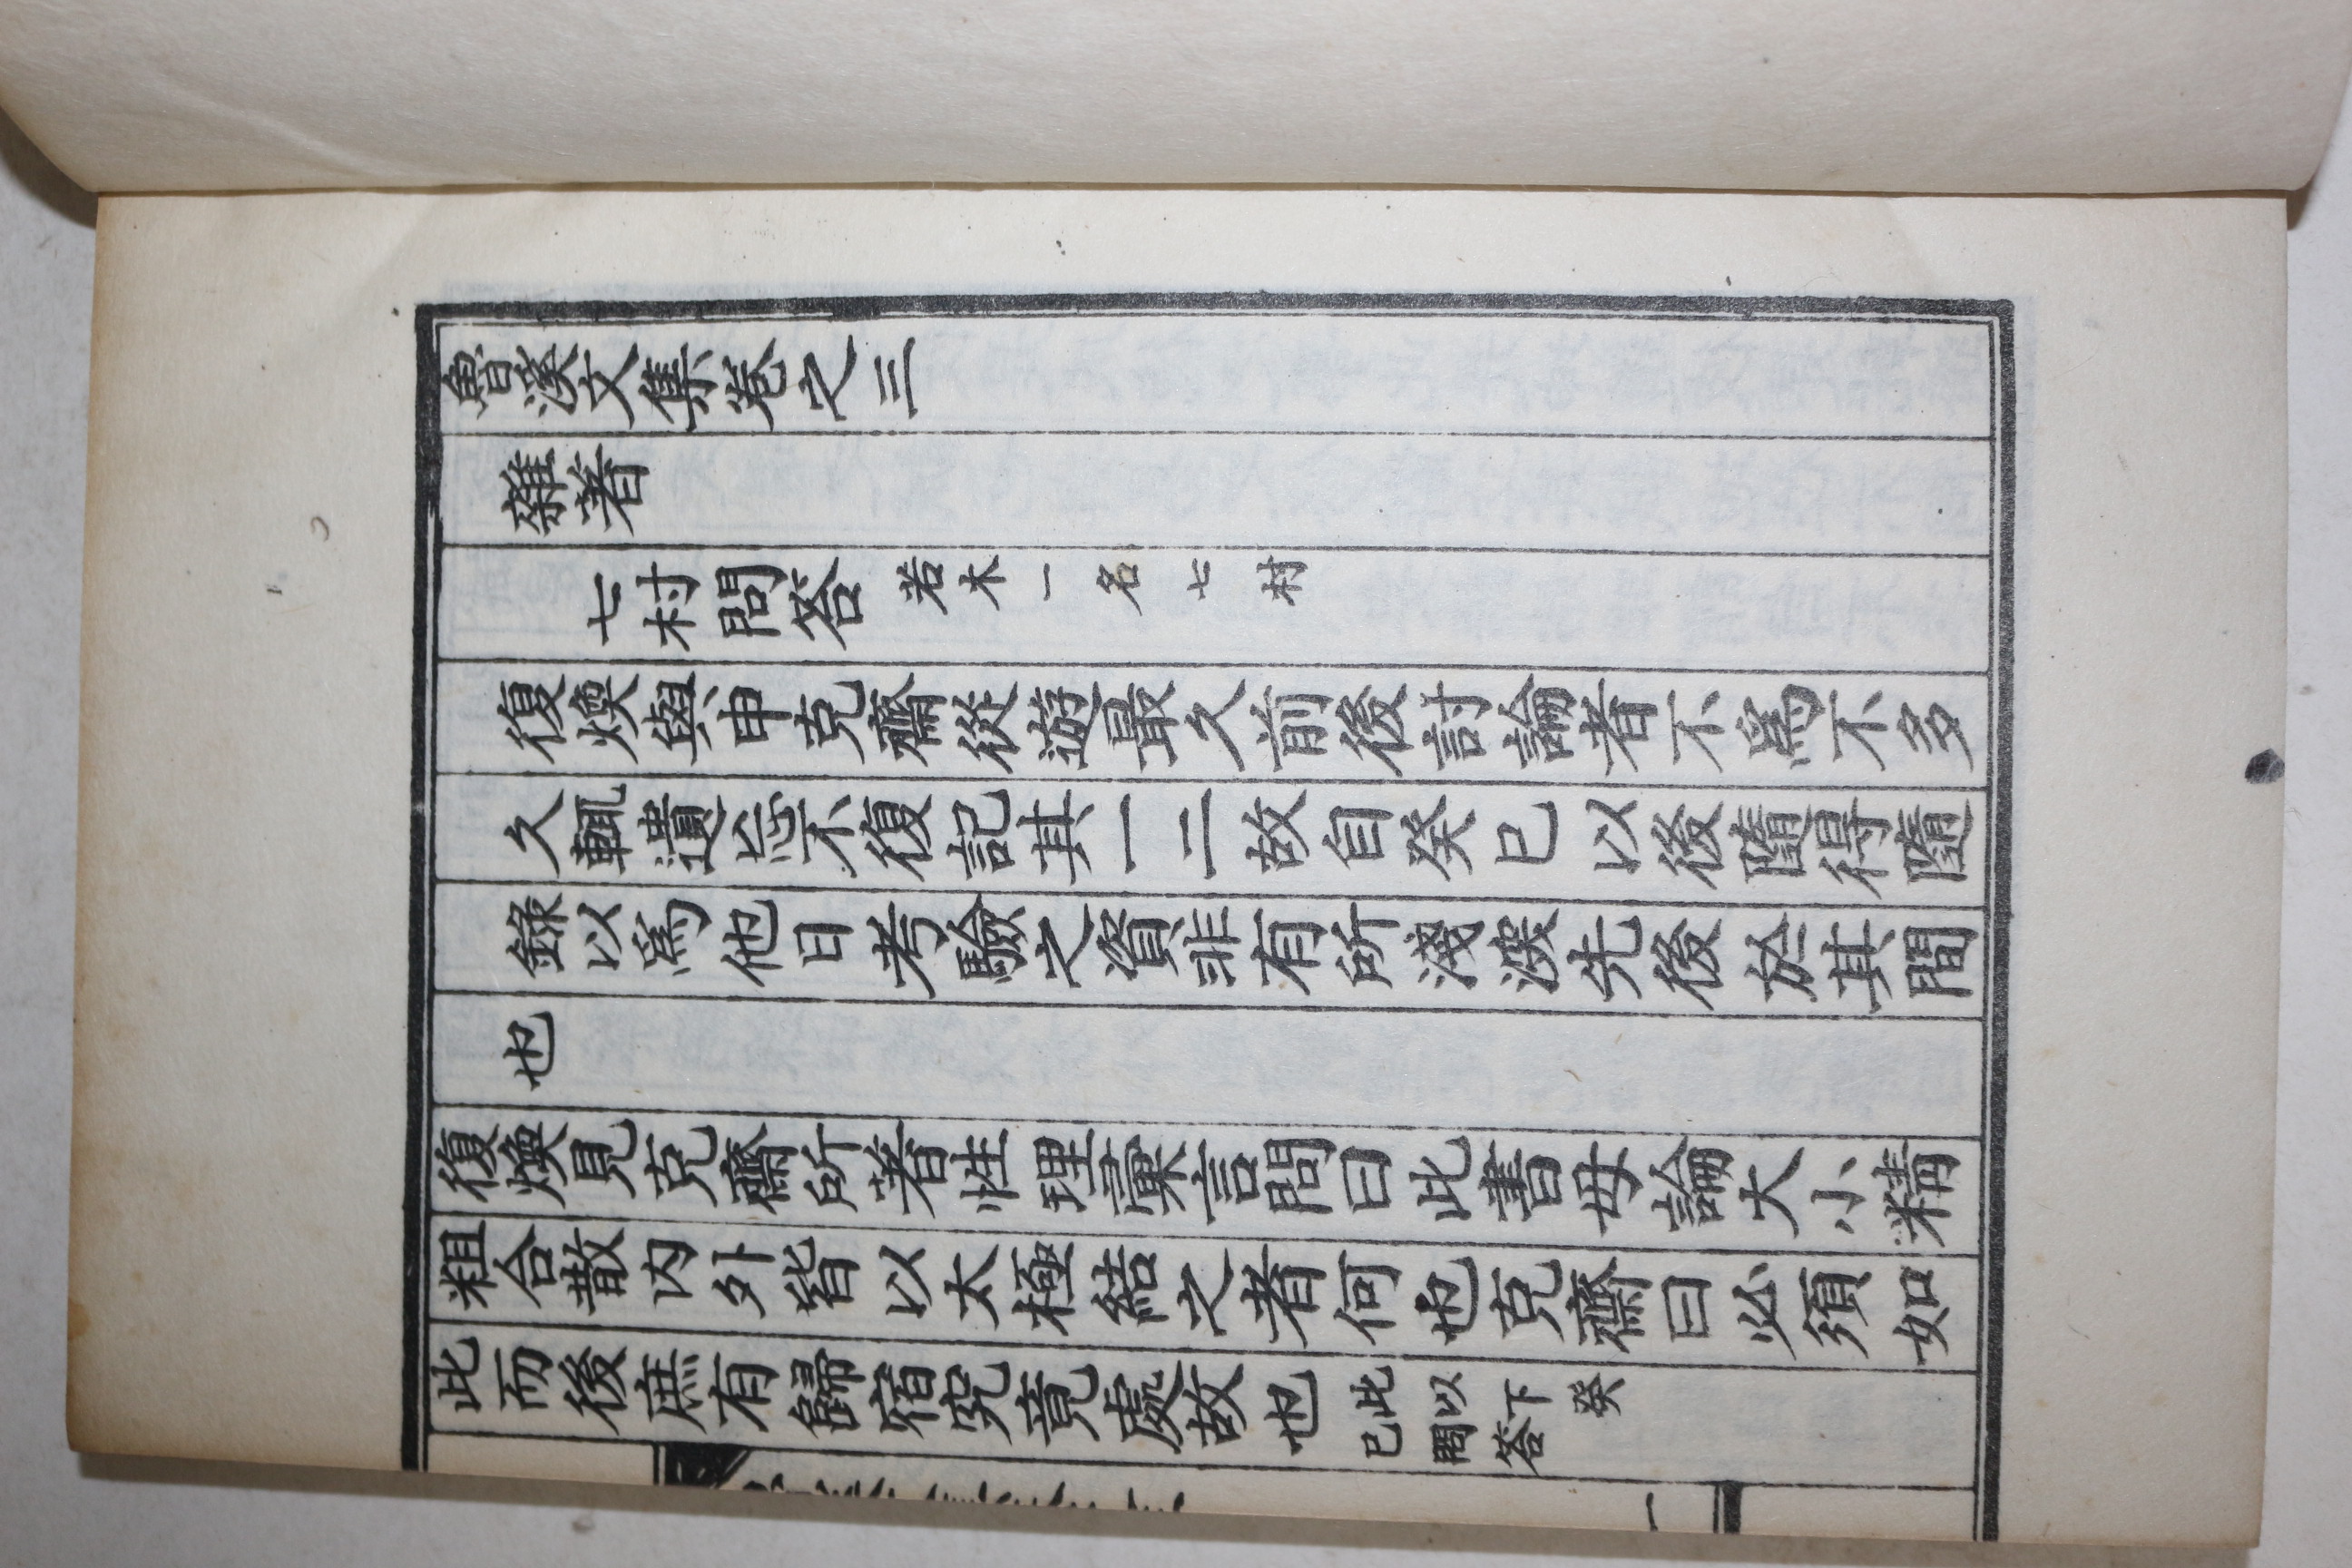 魯溪文集卷之三
雜著
七村問答 若木一名七村
復煥與申克齋從遊最久前後討論者不爲不多
久輒遺忘不復記其一二故自癸巳以後隨得隨
錄以爲他日考驗之資非有所淺深先後於其間
也
復煥見克齋所著性理彙言問曰此書毋論大小精
粗合散內外皆以太極結之者何也克齋曰必須如
此而後庶有歸宿究竟處故也 此以下癸
巳問答
一